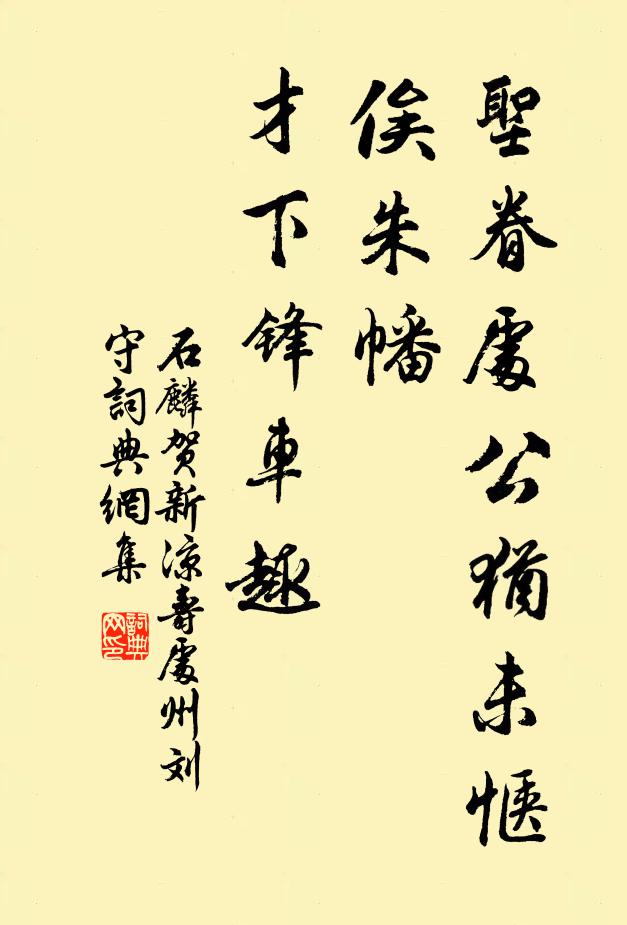 聖眷處公猶未愜
俟朱幡
才下鋒車趣
石麟賀新涼壽處州刘
守詞典網集
詞典网印